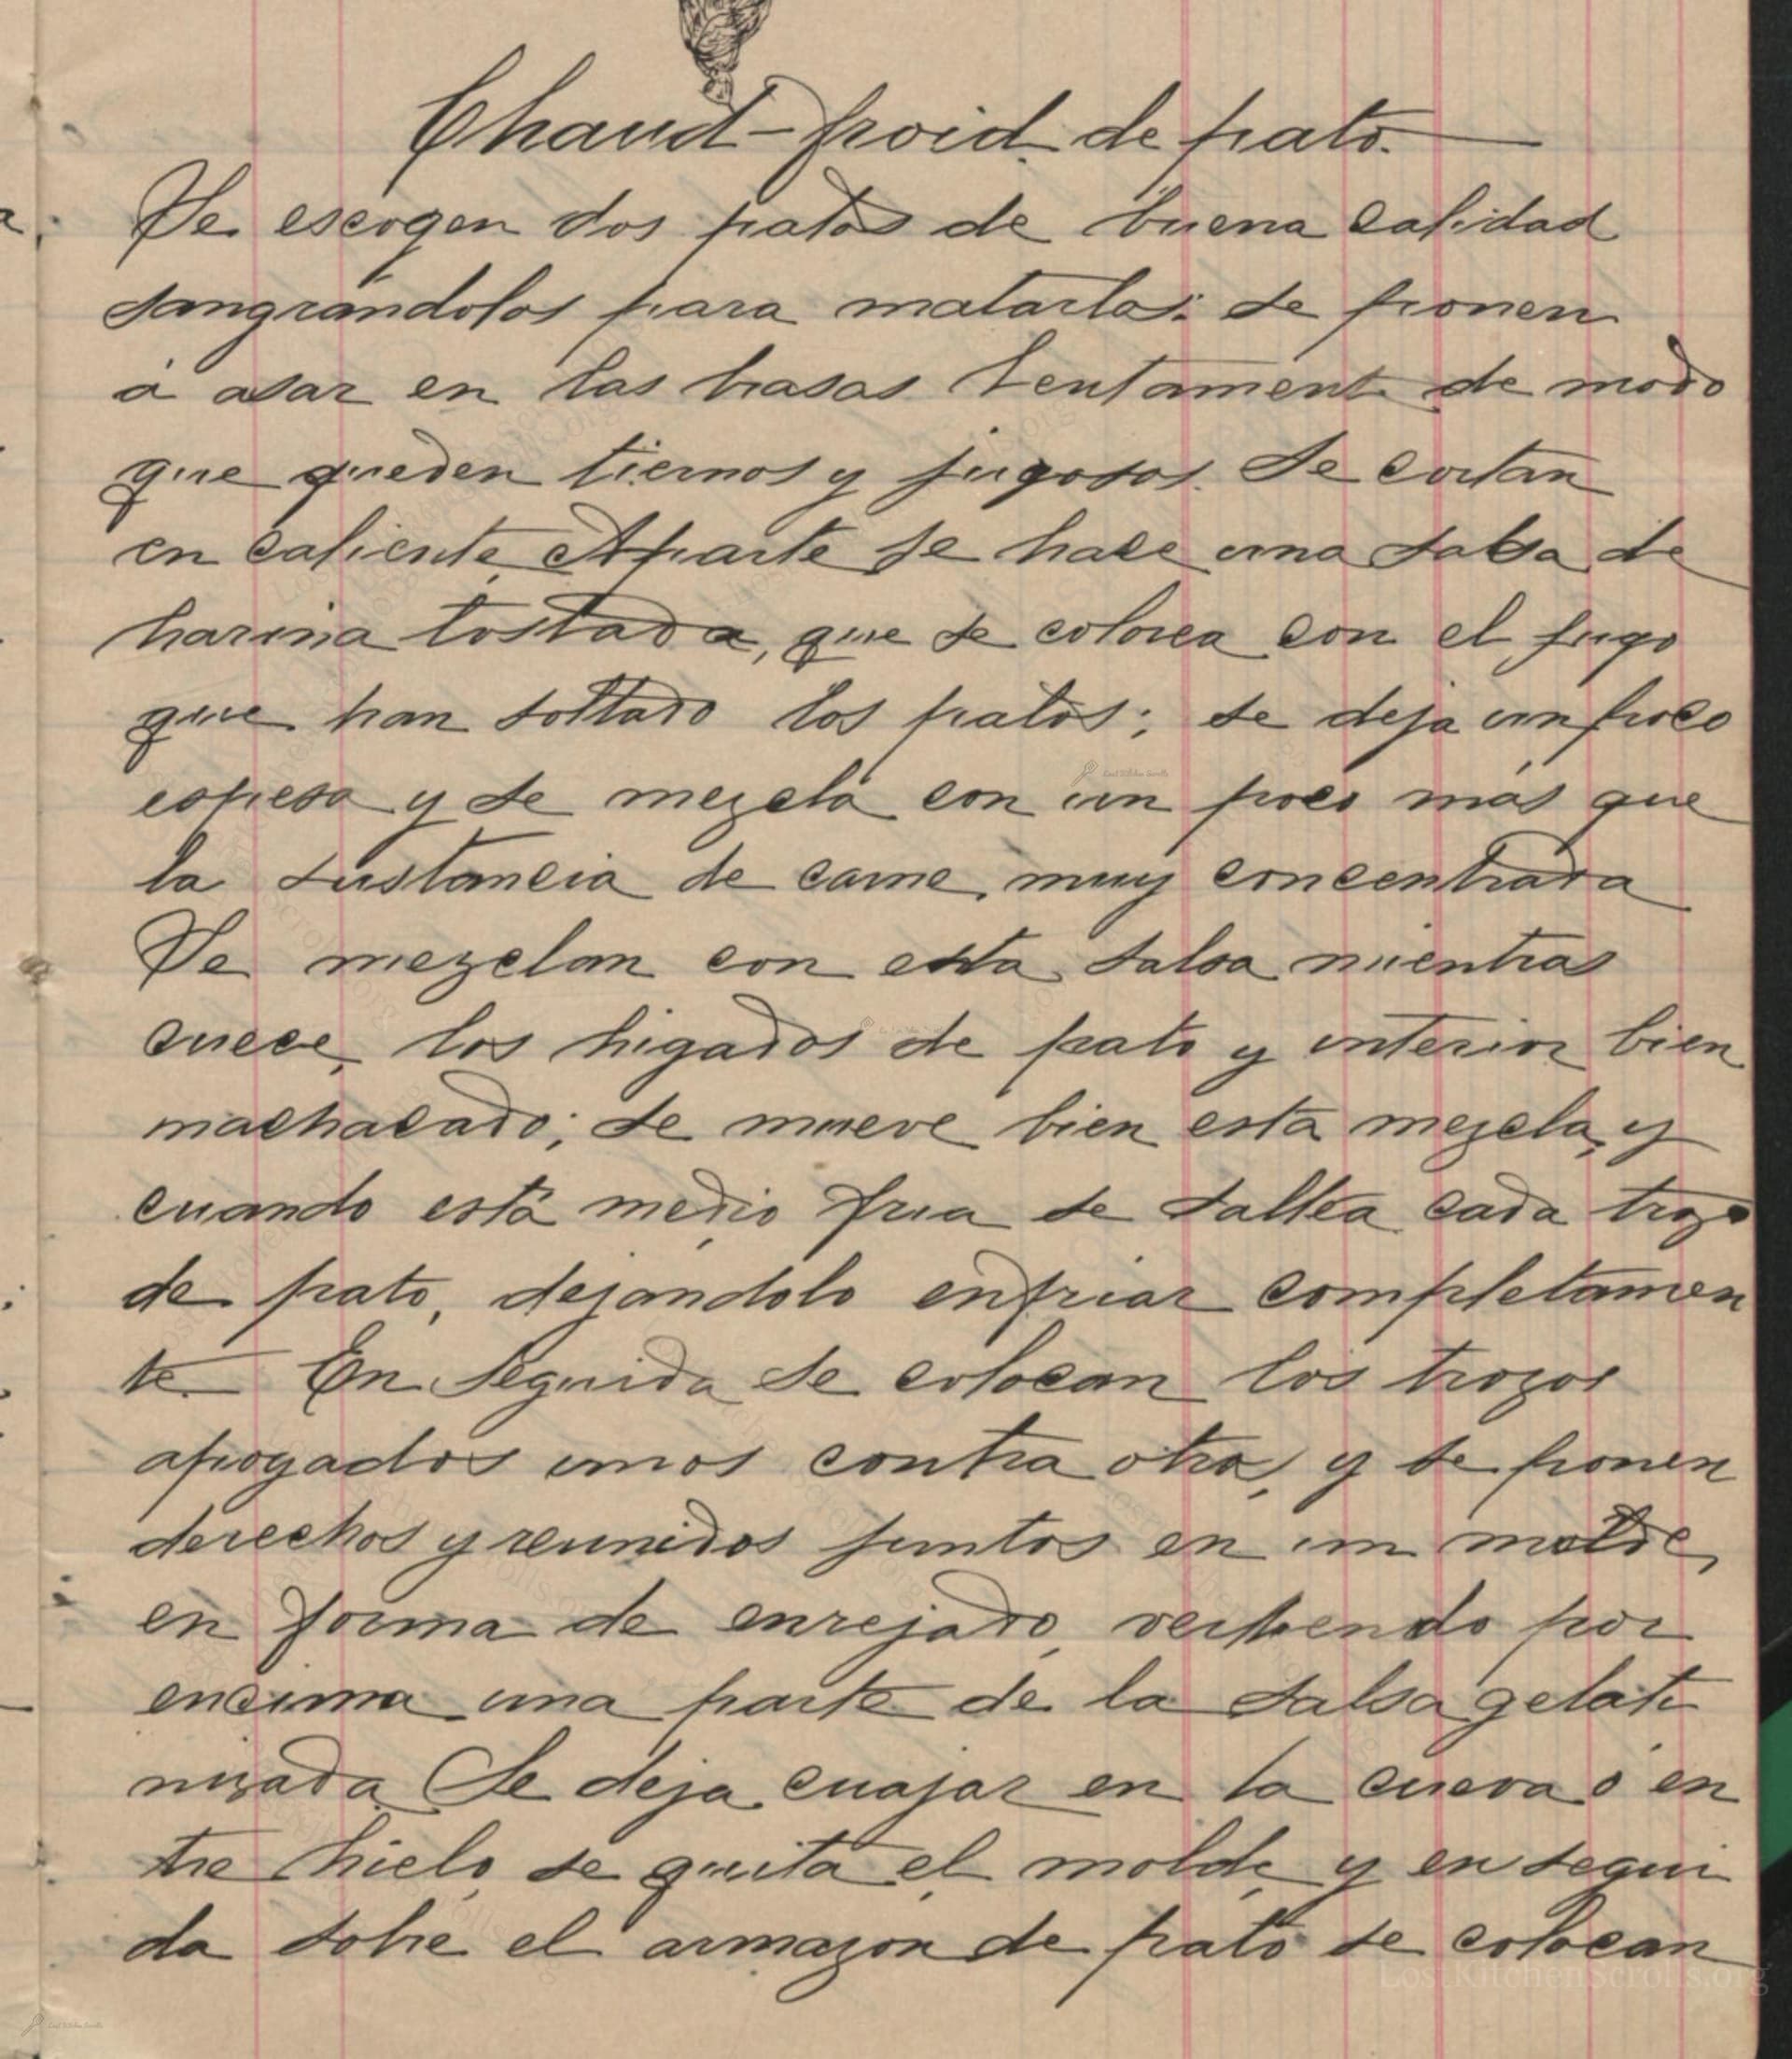 Chaud-froid de pato.
Se escogen dos patos de buena calidad
sangrándolos para matarlos; se ponen
á asar en las brasas lentamente de modo
que queden tiernos y jugosos. Se cortan
en caliente. Aparte se hace una salsa de
harina tostada, que se colorea con el jugo
que han soltado los patos; se deja un poco
espesa y se mezcla con un poco más que
la sustancia de carne, muy concentrada
Se mezclan con esta salsa mientras
cuece, los higados de pato y interior bien
machacado; se mueve bien esta mezcla, y
cuando está medio fria se saltéa cada trozo
de pato, dejándolo enfriar completamen
te. En seguida se colocan los trozos
apoyados unos contra otros, y se ponen
derechos y reunidos juntos en un molde,
en forma de enrejado, vertiendo por
encima una parte de la salsa gelati
nizada. Se deja cuajar en la cueva ó en
tre hielo, se quita el molde, y en segui
da sobre el armazon de pato se colocan
LostKitchenScrolls.org